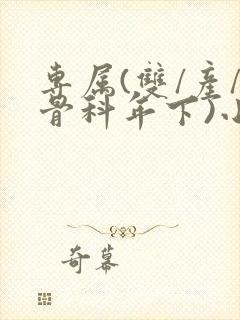 專属(雙/產/
骨科年下)小
奇幕